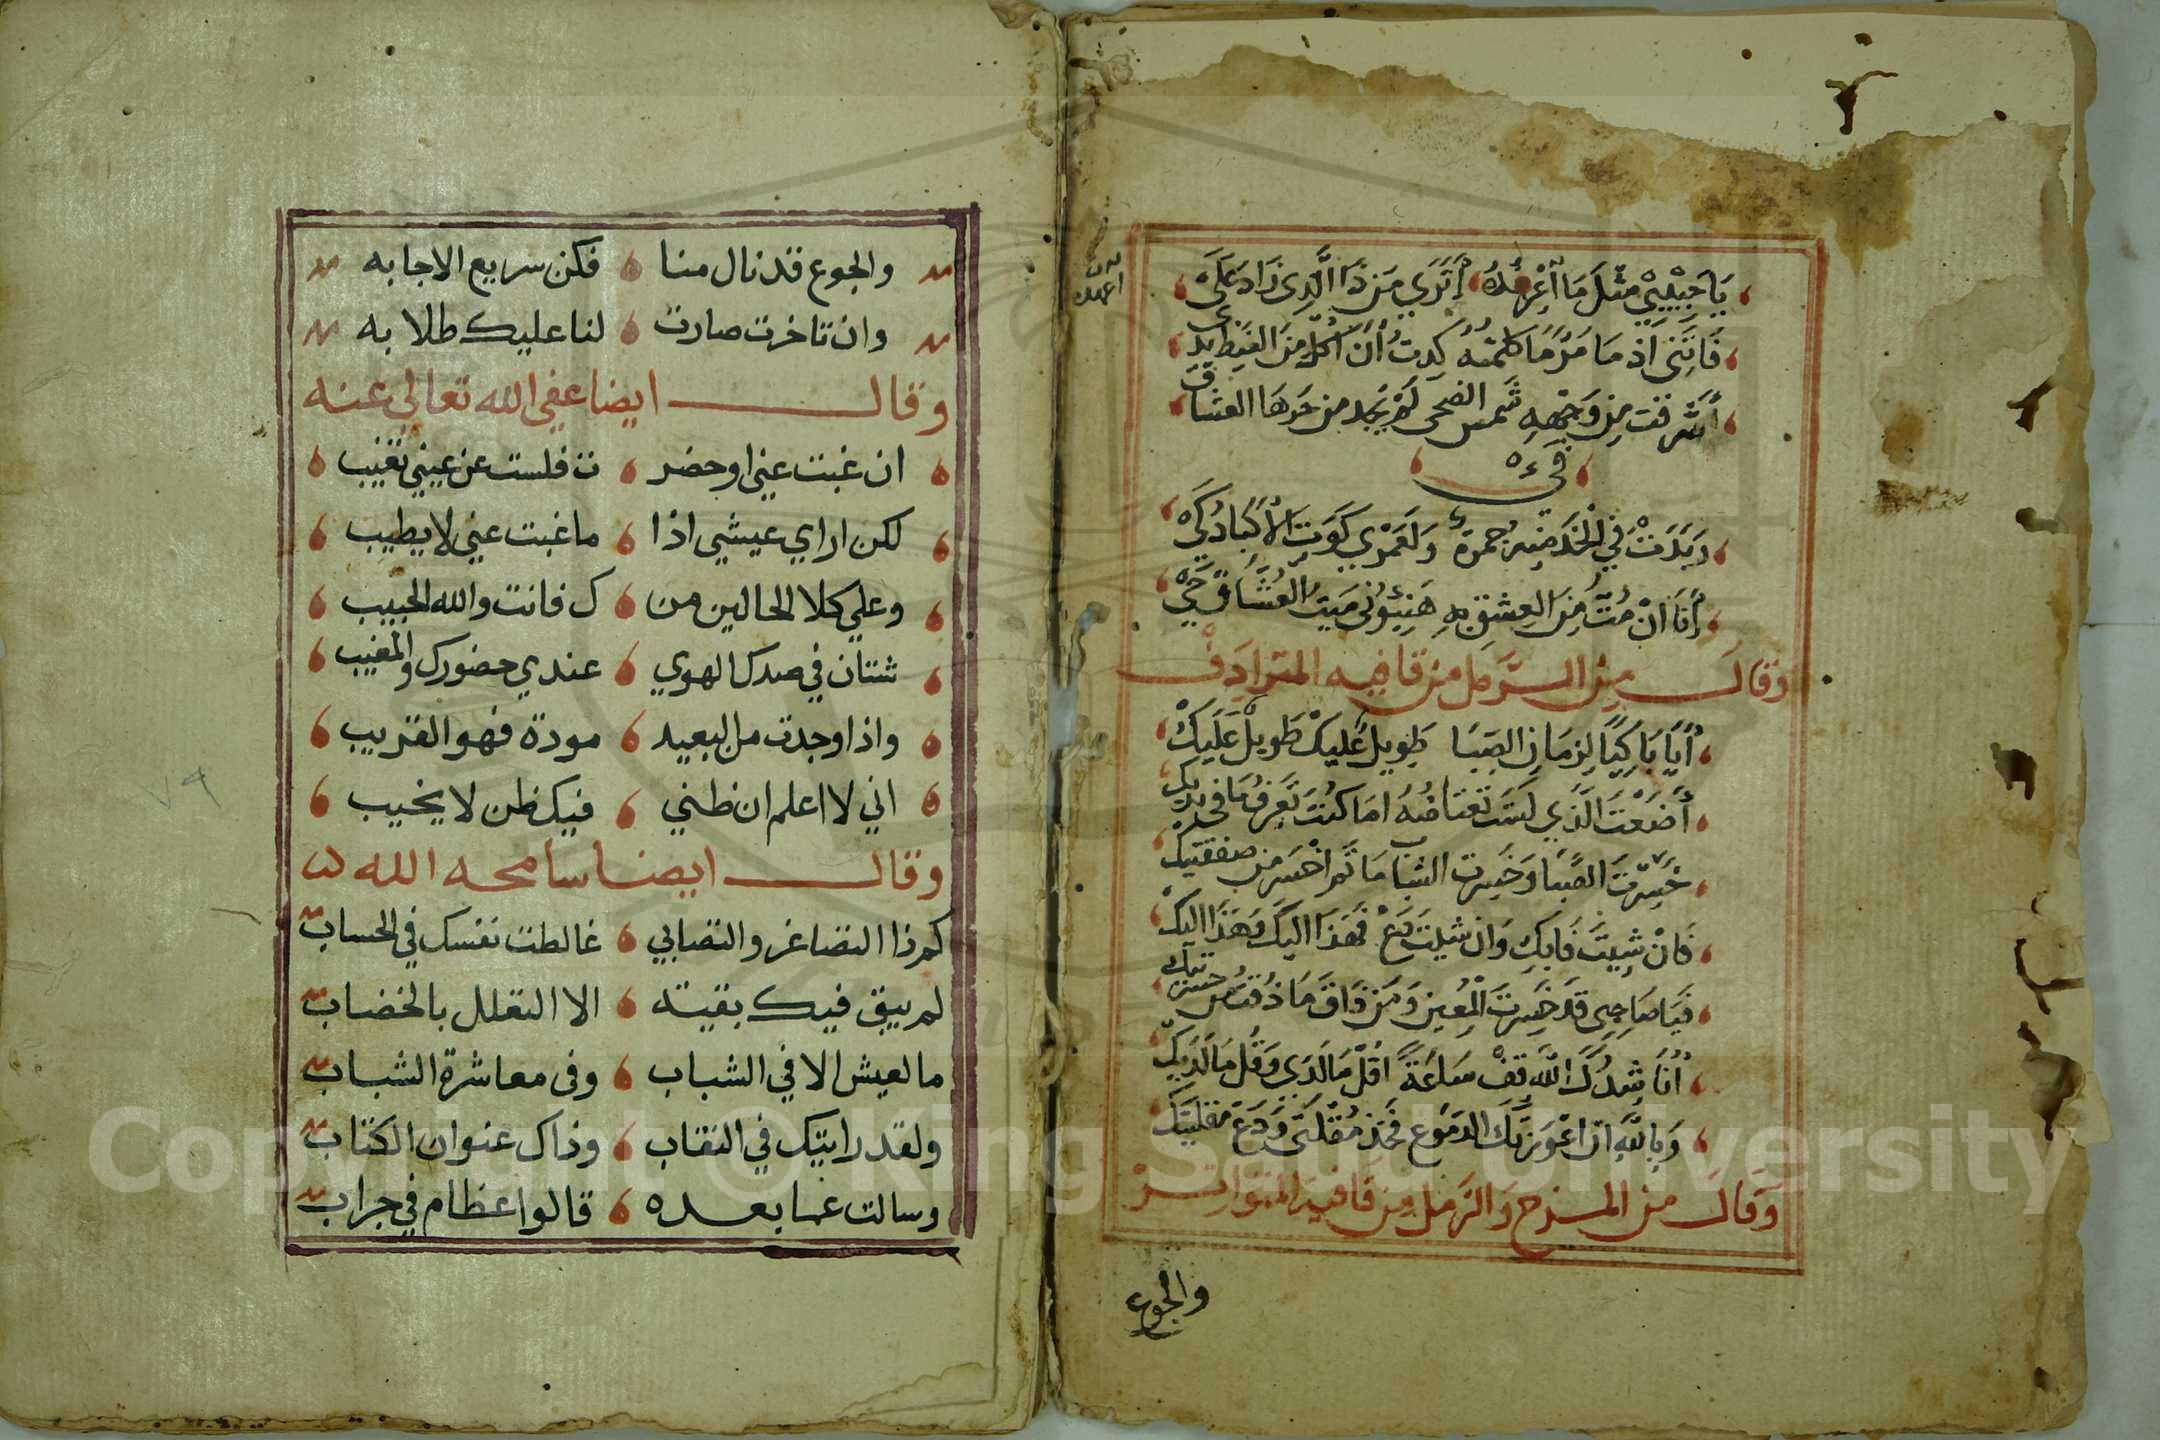 يَا حَبِيْبِيْ مِثْلَ مَا أَعْرِفُهُ أَتَرَي مَن ذَا الَّذِي زَادَ عَلَيَّ
فَاِنَّنِى اِذ مَا مَرَّ مَا كلمتُه كِدتُ أَن اَكُل مِنَ الغَيظِ يَدِي
أَشرَقَت مِن وَجْهِهِ شَمسُ الضحَى لَم يَجد مِن حَرهَا العشاق
فَيء
وَبَدَتْ فِي الْخَد مِنه جَمرة وَلَعَمْرِي كَوَتِ الأَكبَادُ كَيْ
أَنَا انْ مُتُّ مِنَ العِشقِ بِهِ هَنِيئوُنى مَيتُ العُشَّاقِ حَيْ
وَقَالَ مِن الرَّمل من قافيه المترَادِفْ
أَيَا بَاكِيًا لِزمَانِ الصِبَا طَوِيلٌ عَلَيكْ طَوِيلٌ عَلَيكْ
أَضَعْتَ الَّذِي لَستَ تعتَاضُهُ امَا كنتَ تَعرِفُ مَا في يديك
خَسِرْتَ الصِّبَا وَخَسِرتَ الشباب مَا ثَم اخْسَر من صفقتيك
فَانْ شِيتَ فَابكِ وَان شيت دَعْ فَهَذَا اليكَ وَهَذَا اليكْ
فَيَا صَاحِبِى قَد خَسِرتَ الْمُعِين وَمَن ذَاقَ مَا ذُقتُ من حسرتيك
أُنَاشِدُكَ اللَّهَ قِفْ سَاعَةً اقُل مَا لَدَي وَقُل مَا لَدَيكْ
وَبِاللَّهِ ان اعْوزتكَ الدمُوع فَخذ مُقْلَتى وَدَعْ مقلتَيك
وَقَالَ من المنسرح وَالرَمل مِن قَافيه المتوَاتر
والجوع
والجوع قد نال منا فكن سريع الاجابه
وان تاخرت صارت لنا عليك طلابه
وقال ايضا عفى الله تعالي عنه
ان غبت عني او حضر ت فلست عن عيني تغيب
لكن اراي عيشي اذا ما غبت عني لا يطيب
وعلي كلا الحالين من ك فانت والله الحبيب
شتان في صدك الهوي عندي حضورك والمغيب
واذا وجدت من البعيد مودة فهو القريب
اني لا اعلم ان ظني فيك ظن لا يخيب
وقال ايضا سامحه الله
كم ذا التصاغر والتصابي غالطت نفسك في الحساب
لم يبق فيك بقيته الا التعلل بالخضاب
ما لعيش الا في الشباب وفى معاشرة الشباب
ولقد رايتك في النقاب وذاك عنوان الكتاب
وسالت عما بعده قالوا عظام في جراب
٧٩
Copyright © King Saud University